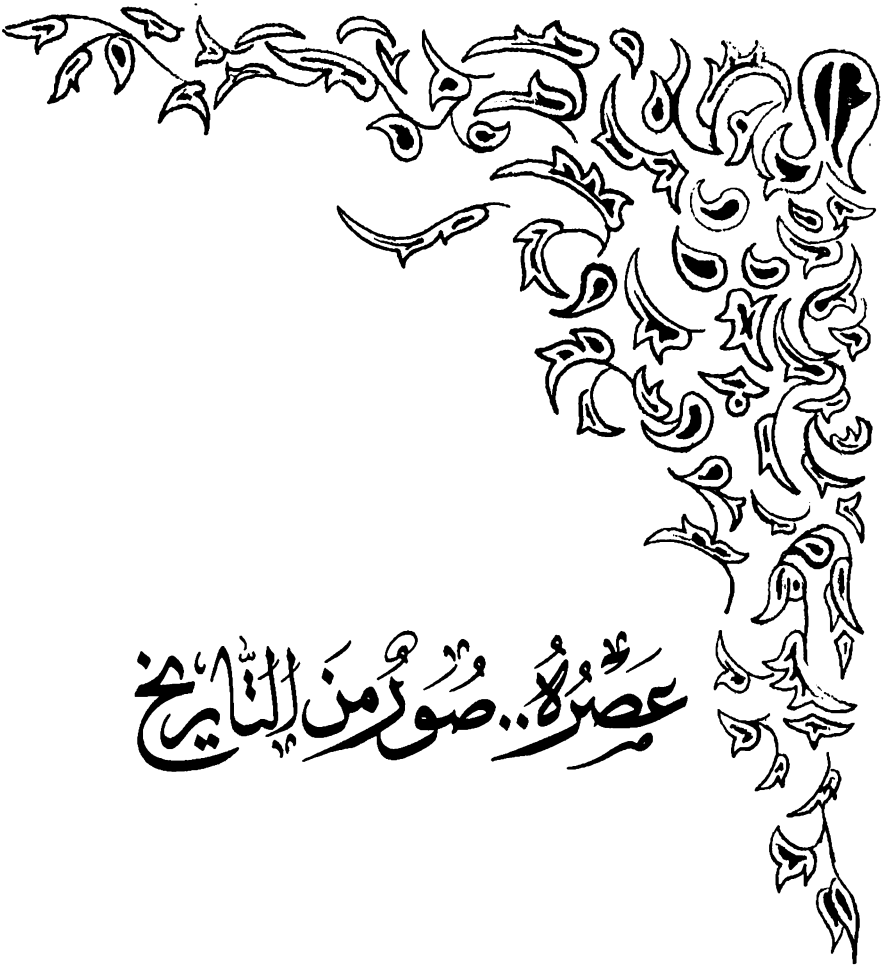 عَصْرُهُ.. صُوَرٌ مِنَ التَّارِيخ